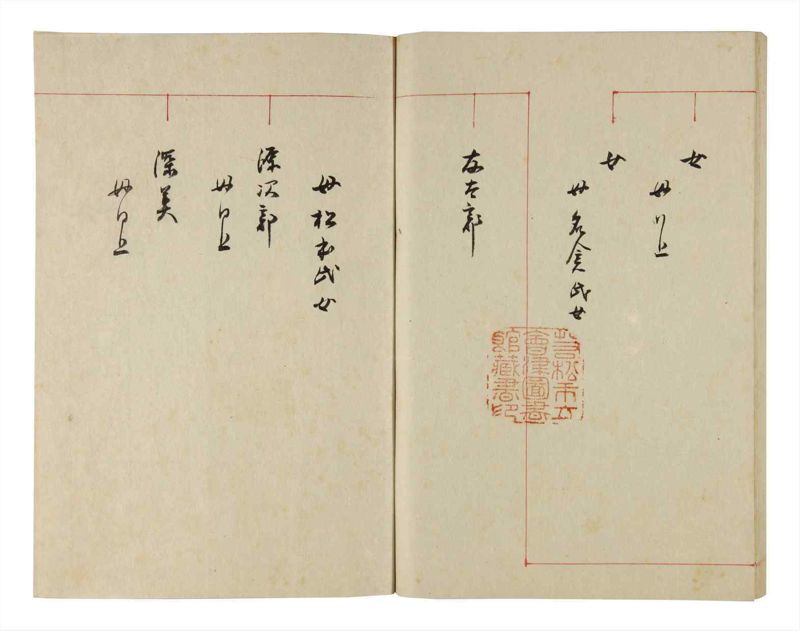 女
母同上
女
母名倉氏女
友太郎
若松市立
會津圖書
館藏書印
母松本氏女
源次郎
母同上
深美
母同上